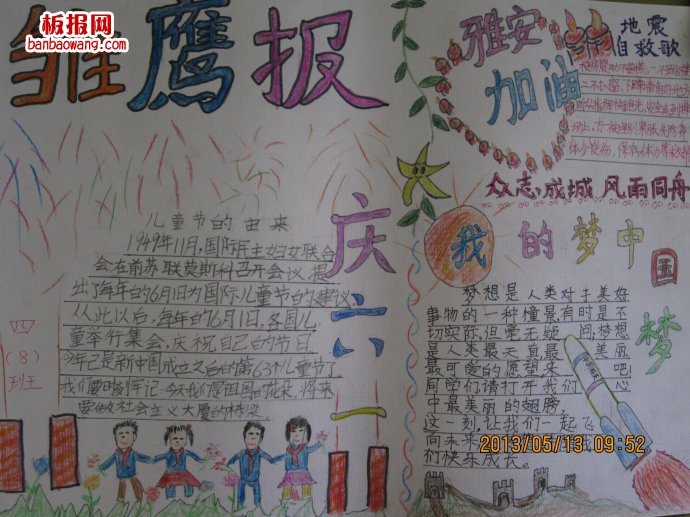 板报网
banbaowang.com
雏鹰报
雅安
加油
地震
自救歌
众志成城 风雨同舟
儿童节的由来
1949年11月,国际民主妇女联合
会在前苏联莫斯科召开会议,提
出了每年的6月1日为国际儿童节的建议
从此以后,每年的6月1日,各国儿
童举行集会,庆祝自己的节日
今年已是新中国成立之后的第63个儿童节了
我们要时刻牢记:今天我们是祖国的花朵,将来
要做社会主义大厦的栋梁
庆六一
四
(8)
班
我的梦中国梦
梦想是人类对于美好
事物的一种憧景,有时是不
切实际,但毫无疑问,梦想
是人类最天真最美丽
最可爱的愿望来吧!
同学们请打开我们心
中最美丽的翅膀
这一刻,让我们一起飞
向未来
们快乐成长。
2013/05/13 09:52